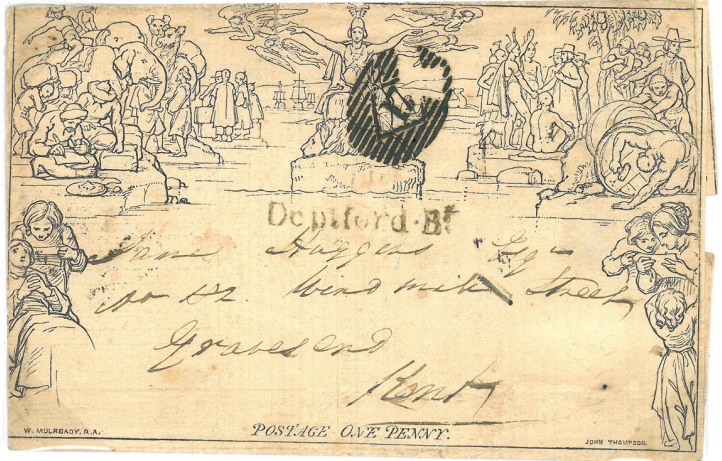 Deptford·Bt
Higgens Esqr
No 12. Wind mile Street
Gravesend
Kent
W. MULREADY. R.A.
POSTAGE ONE PENNY.
JOHN THOMPSON.